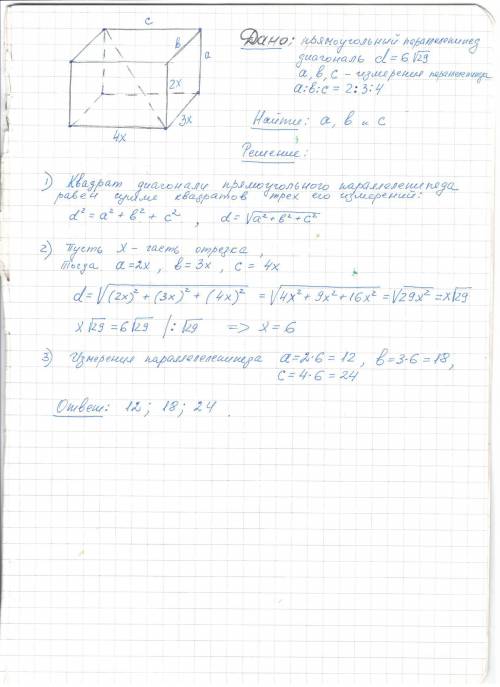 c
в
a
2x
3x
4x
Дано: прямоугольный параллелепипед
диагональ d = 6√29
a, b, c - измерения параллелепипеда
a:b:c = 2:3:4
Найти: a, b и c
Решение:
1) Квадрат диагонали прямоугольного параллелепипеда
равен сумме квадратов трех его измерений:
d² = a² + b² + c² , d = √(a² + b² + c²)
2) Пусть x - часть отрезка,
Тогда a = 2x, b = 3x, c = 4x
d = √((2x)² + (3x)² + (4x)²) = √(4x² + 9x² + 16x²) = √(29x²) = x√29
x√29 = 6√29 |:√29 => x = 6
3) Измерения параллелепипеда a = 2·6 = 12, b = 3·6 = 18,
c = 4·6 = 24
Ответ: 12; 18; 24.